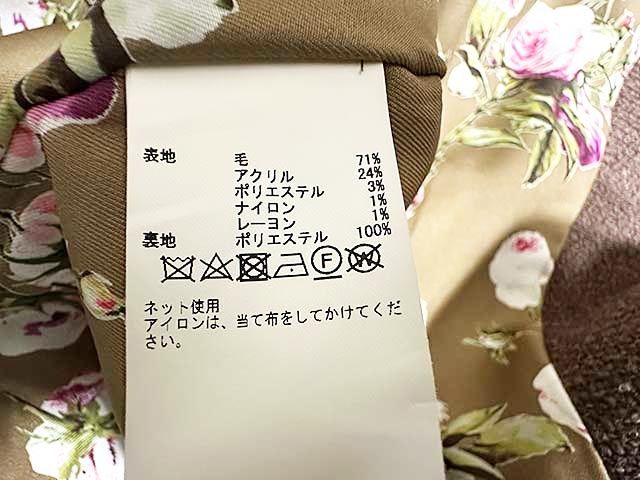 表地 毛 71%
アクリル 24%
ポリエステル 3%
ナイロン 1%
レーヨン 1%
裏地 ポリエステル 100%
F W
ネット使用
アイロンは、当て布をしてかけてくだ
さい。